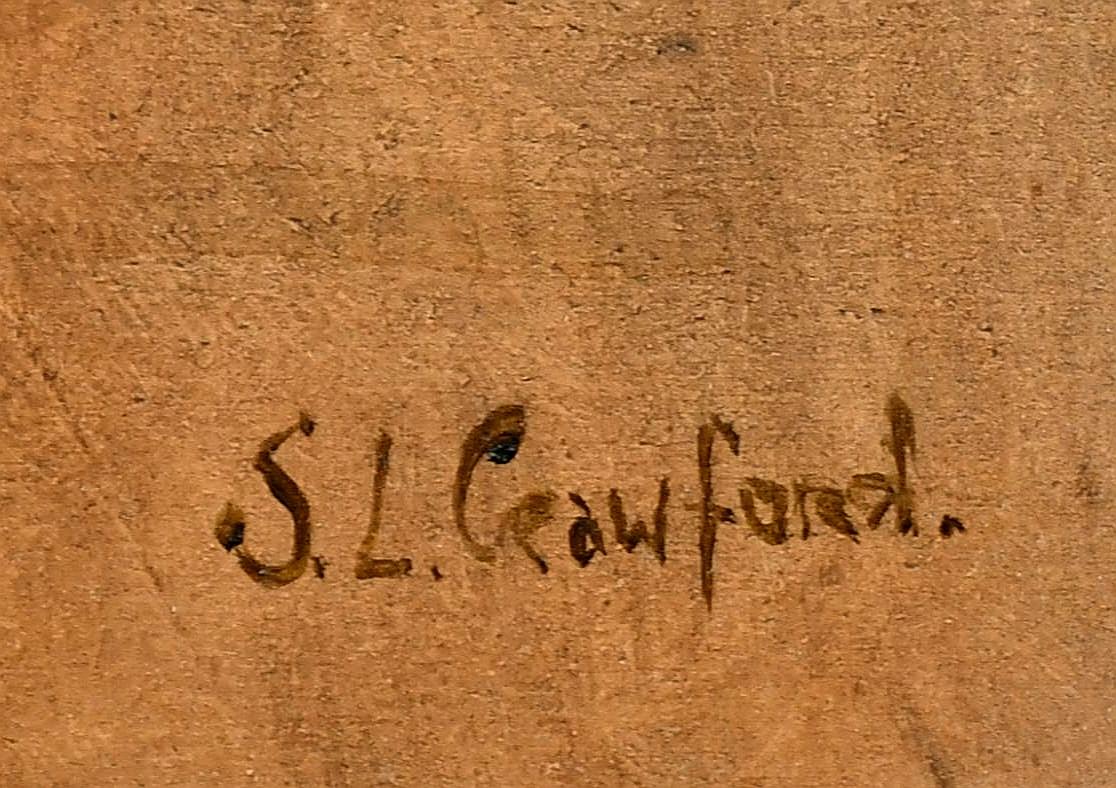 S. L. Crawford.